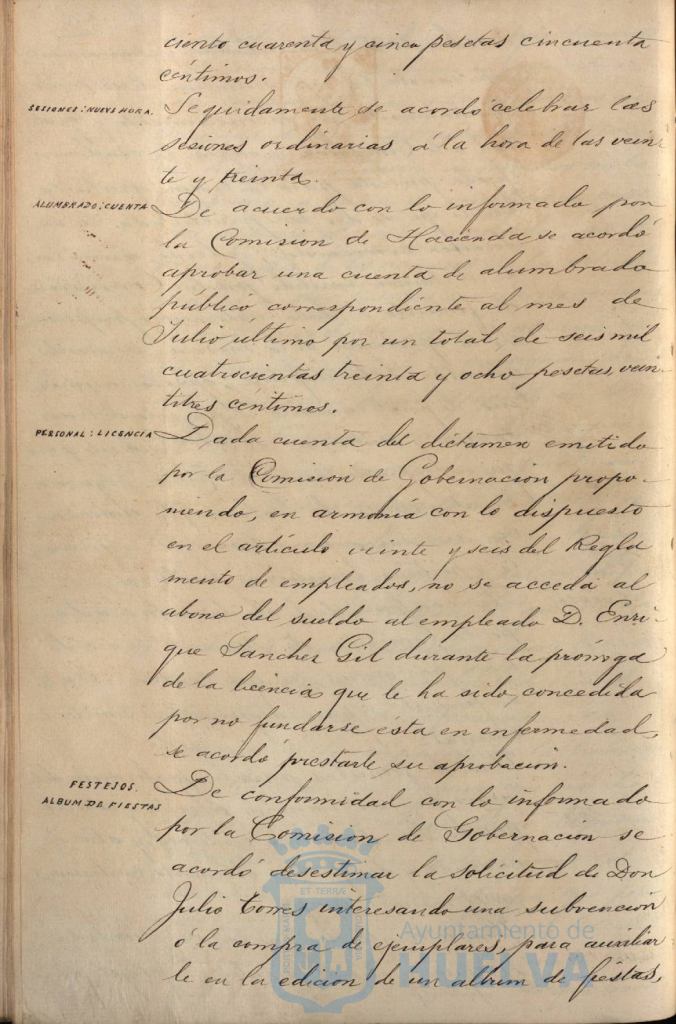 ciento cuarenta y cinco pesetas cincuenta
céntimos.
SESIONES: NUEVE HORA.
Seguidamente se acordó celebrar las
sesiones ordinarias á la hora de las vein-
te y treinta.
ALUMBRADO: CUENTA
De acuerdo con lo informado por
la Comision de Hacienda se acordó
aprobar una cuenta de alumbrado
público correspondiente al mes de
Julio último por un total de seis mil
cuatrocientas treinta y ocho pesetas, vein-
titres centimos.
PERSONAL: LICENCIA
Dada cuenta del dictamen emitido
por la Comision de Gobernacion propo-
niendo, en armonía con lo dispuesto
en el artículo veinte y seis del Regla
mento de empleados, no se acceda al
abono del sueldo al empleado D. Enri-
que Sanchez Gil durante la prórroga
de la licencia que le ha sido concedida
por no fundarse ésta en enfermedad,
se acordó prestarle su aprobacion.
FESTEJOS.
ALBUM DE FIESTAS
De conformidad con lo informado
por la Comision de Gobernacion se
acordó desestimar la solicitud de Don
Julio Torres interesando una subvención
ó la compra de ejemplares, para auxiliar
le en la edición de un album de fiestas,
Ayuntamiento de
HUELVA